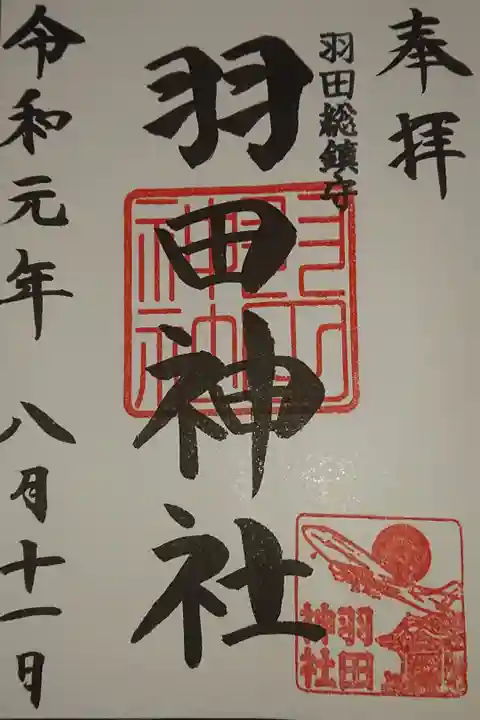 奉拝
羽田総鎮守
羽田神社
羽田神社
羽田
神社
令和元年 八月十一日